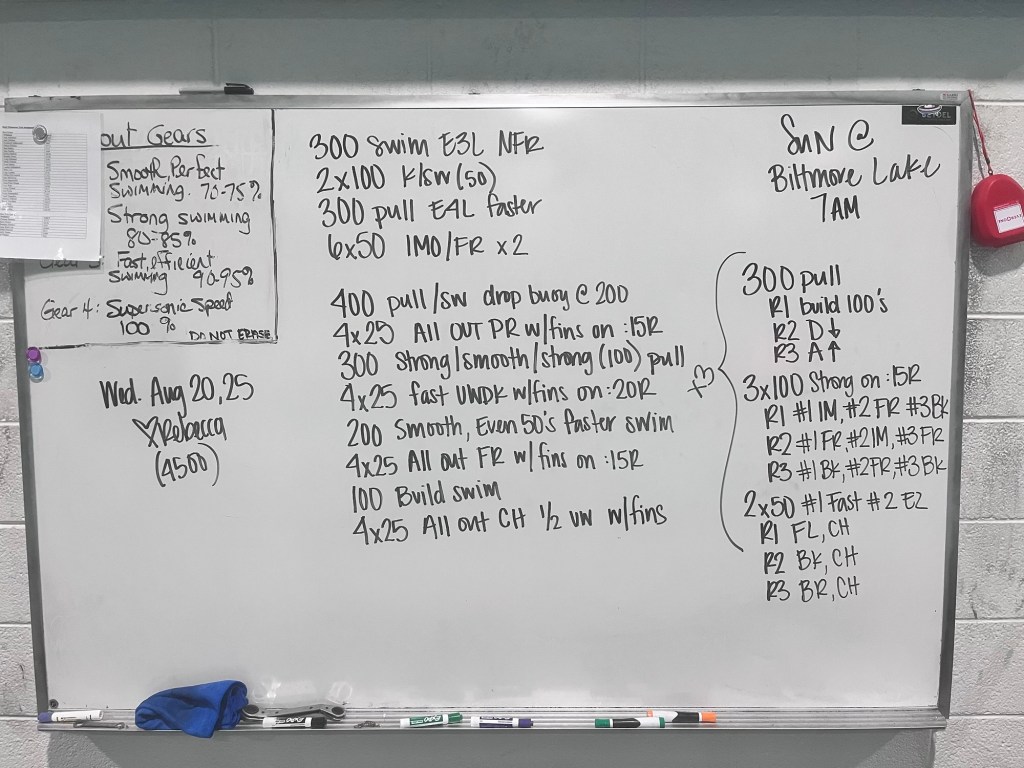 out Gears
Smooth, Perfect
Swimming. 70-75%
Strong swimming
80-85%
Fast, efficient
Swimming 90-95%
Gear 4: Supersonic Speed
100 %
DO NOT ERASE
Wed. Aug 20, 25
♡Rebecca
(4500)
300 Swim E3L NFR
2x100 K/sw (50)
300 pull E4L faster
6x50 IMO/FR x2
400 pull/sw drop buoy @ 200
4x25 All OUT PR w/fins on :15R
300 Strong/smooth/strong (100) pull
4x25 fast UWDK w/fins on :20R
200 Smooth, Even 50's faster swim
4x25 All out FR w/fins on :15R
100 Build swim
4x25 All out CH 1/2 UW w/fins
SUN @
Biltmore Lake
7AM
x3
300 pull
R1 Build 100's
R2 D↓
R3 A↑
3x100 Strong on :15R
R1 #1 IM, #2 FR #3 BK
R2 #1 FR, #2 IM, #3 FR
R3 #1 BK, #2 FR, #3 BK
2x50 #1 Fast #2 EZ
R1 FL, CH
R2 BK, CH
R3 BR, CH